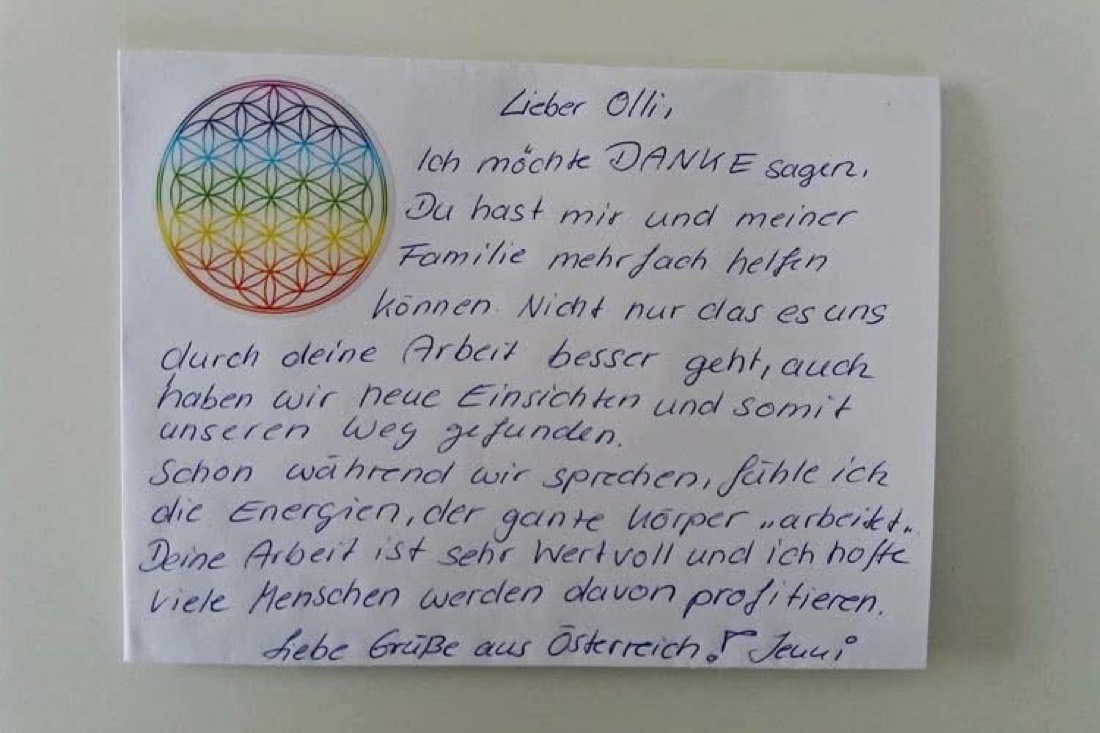 Lieber Olli,
Ich möchte DANKE sagen.
Du hast mir und meiner
Familie mehrfach helfen
können. Nicht nur das es uns
durch deine Arbeit besser geht, auch
haben wir neue Einsichten und somit
unseren Weg gefunden.
Schon während wir sprechen, fühle ich
die Energien, der ganze Körper „arbeitet„
Deine Arbeit ist sehr Wertvoll und ich hoffe
viele Menschen werden davon profitieren.
Liebe Grüße aus Österreich! Jenni